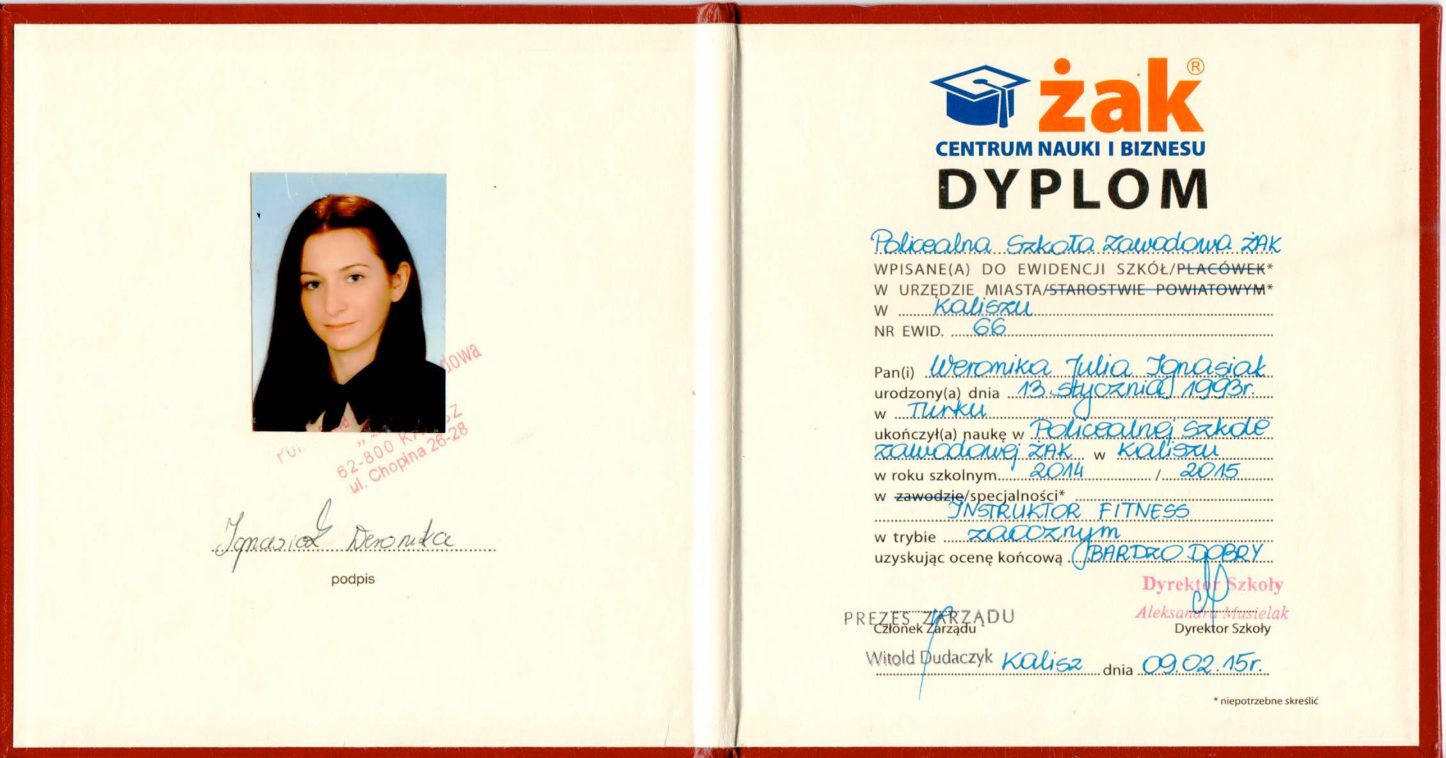 dowa
62-800 K
SZ
ul. Chopina 26-28
Ignasiak Weronika
podpis
żak®
CENTRUM NAUKI I BIZNESU
DYPLOM
Policealna Szkoła Zawodowa ŻAK
WPISANE(A) DO EWIDENCJI SZKÓŁ/PLACÓWEK*
W URZĘDZIE MIASTA/STAROSTWIE POWIATOWYM*
W Kaliszu
NR EWID. 66
Pan(i) Weronika Julia Ignasiak
urodzony(a) dnia 13 stycznia 1993r.
w Turku
ukończył(a) naukę w Policealnej Szkole
Zawodowej ŻAK w Kaliszu
w roku szkolnym 2014 / 2015
w zawodzie/specjalności*
INSTRUKTOR FITNESS
w trybie zaocznym
uzyskując ocenę końcową BARDZO DOBRY
Dyrektor Szkoły
Aleksandra Musielak
Dyrektor Szkoły
PREZES ZARZĄDU
Członek Zarządu
Witold Dudaczyk
Kalisz dnia 09.02.15r.
* niepotrzebne skreślić